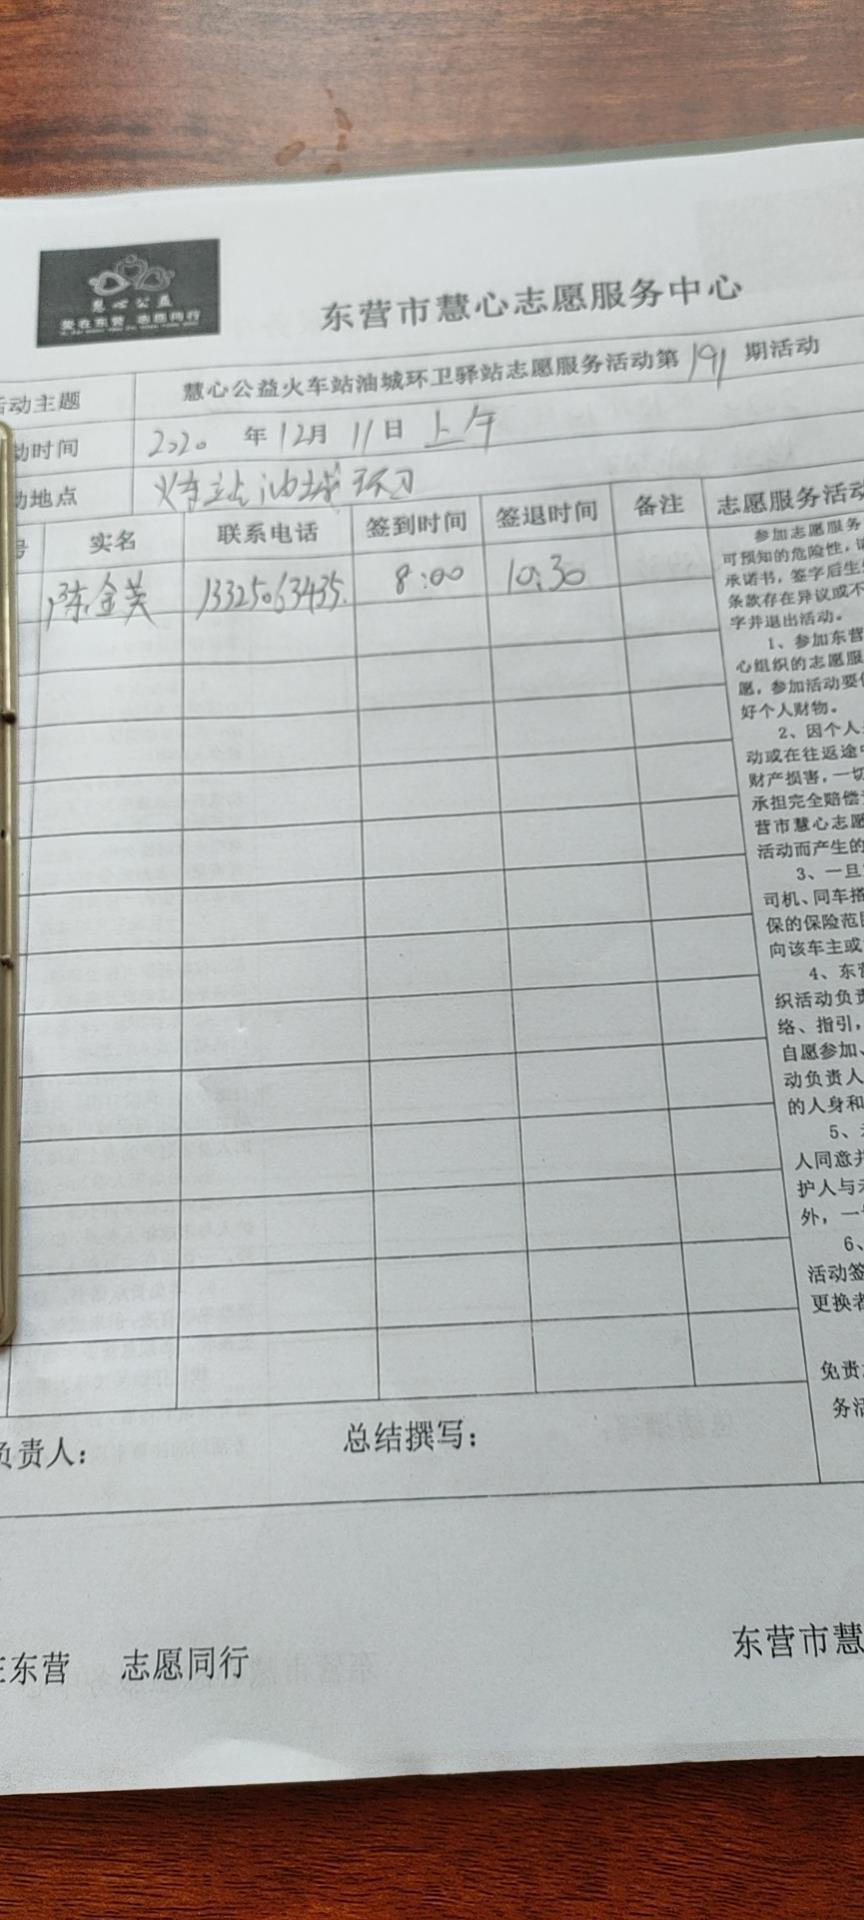 慧心公益
爱在东营 志愿同行
东营市慧心志愿服务中心
活动主题 慧心公益火车站油城环卫驿站志愿服务活动第191期活动
动时间 2020年12月11日上午
动地点 火车站油城环卫
号 实名 联系电话 签到时间 签退时间 备注 志愿服务活动
陈金英 13325063435. 8:00 10:30
参加志愿服务
可预知的危险性,请
承诺书,签字后生
条款存在异议或不
字并退出活动。
1、参加东营
心组织的志愿服
愿,参加活动要
好个人财物。
2、因个人
动或在往返途中
财产损害,一切
承担完全赔偿
营市慧心志愿
活动而产生的
3、一旦
司机、同车搭
保的保险范围
向该车主或
4、东营
织活动负责
络、指引,
自愿参加、
动负责人
的人身和
5、
人同意并
护人与未
外,一切
6、
活动签
更换者
免责
务活
负责人: 总结撰写:
在东营 志愿同行 东营市慧